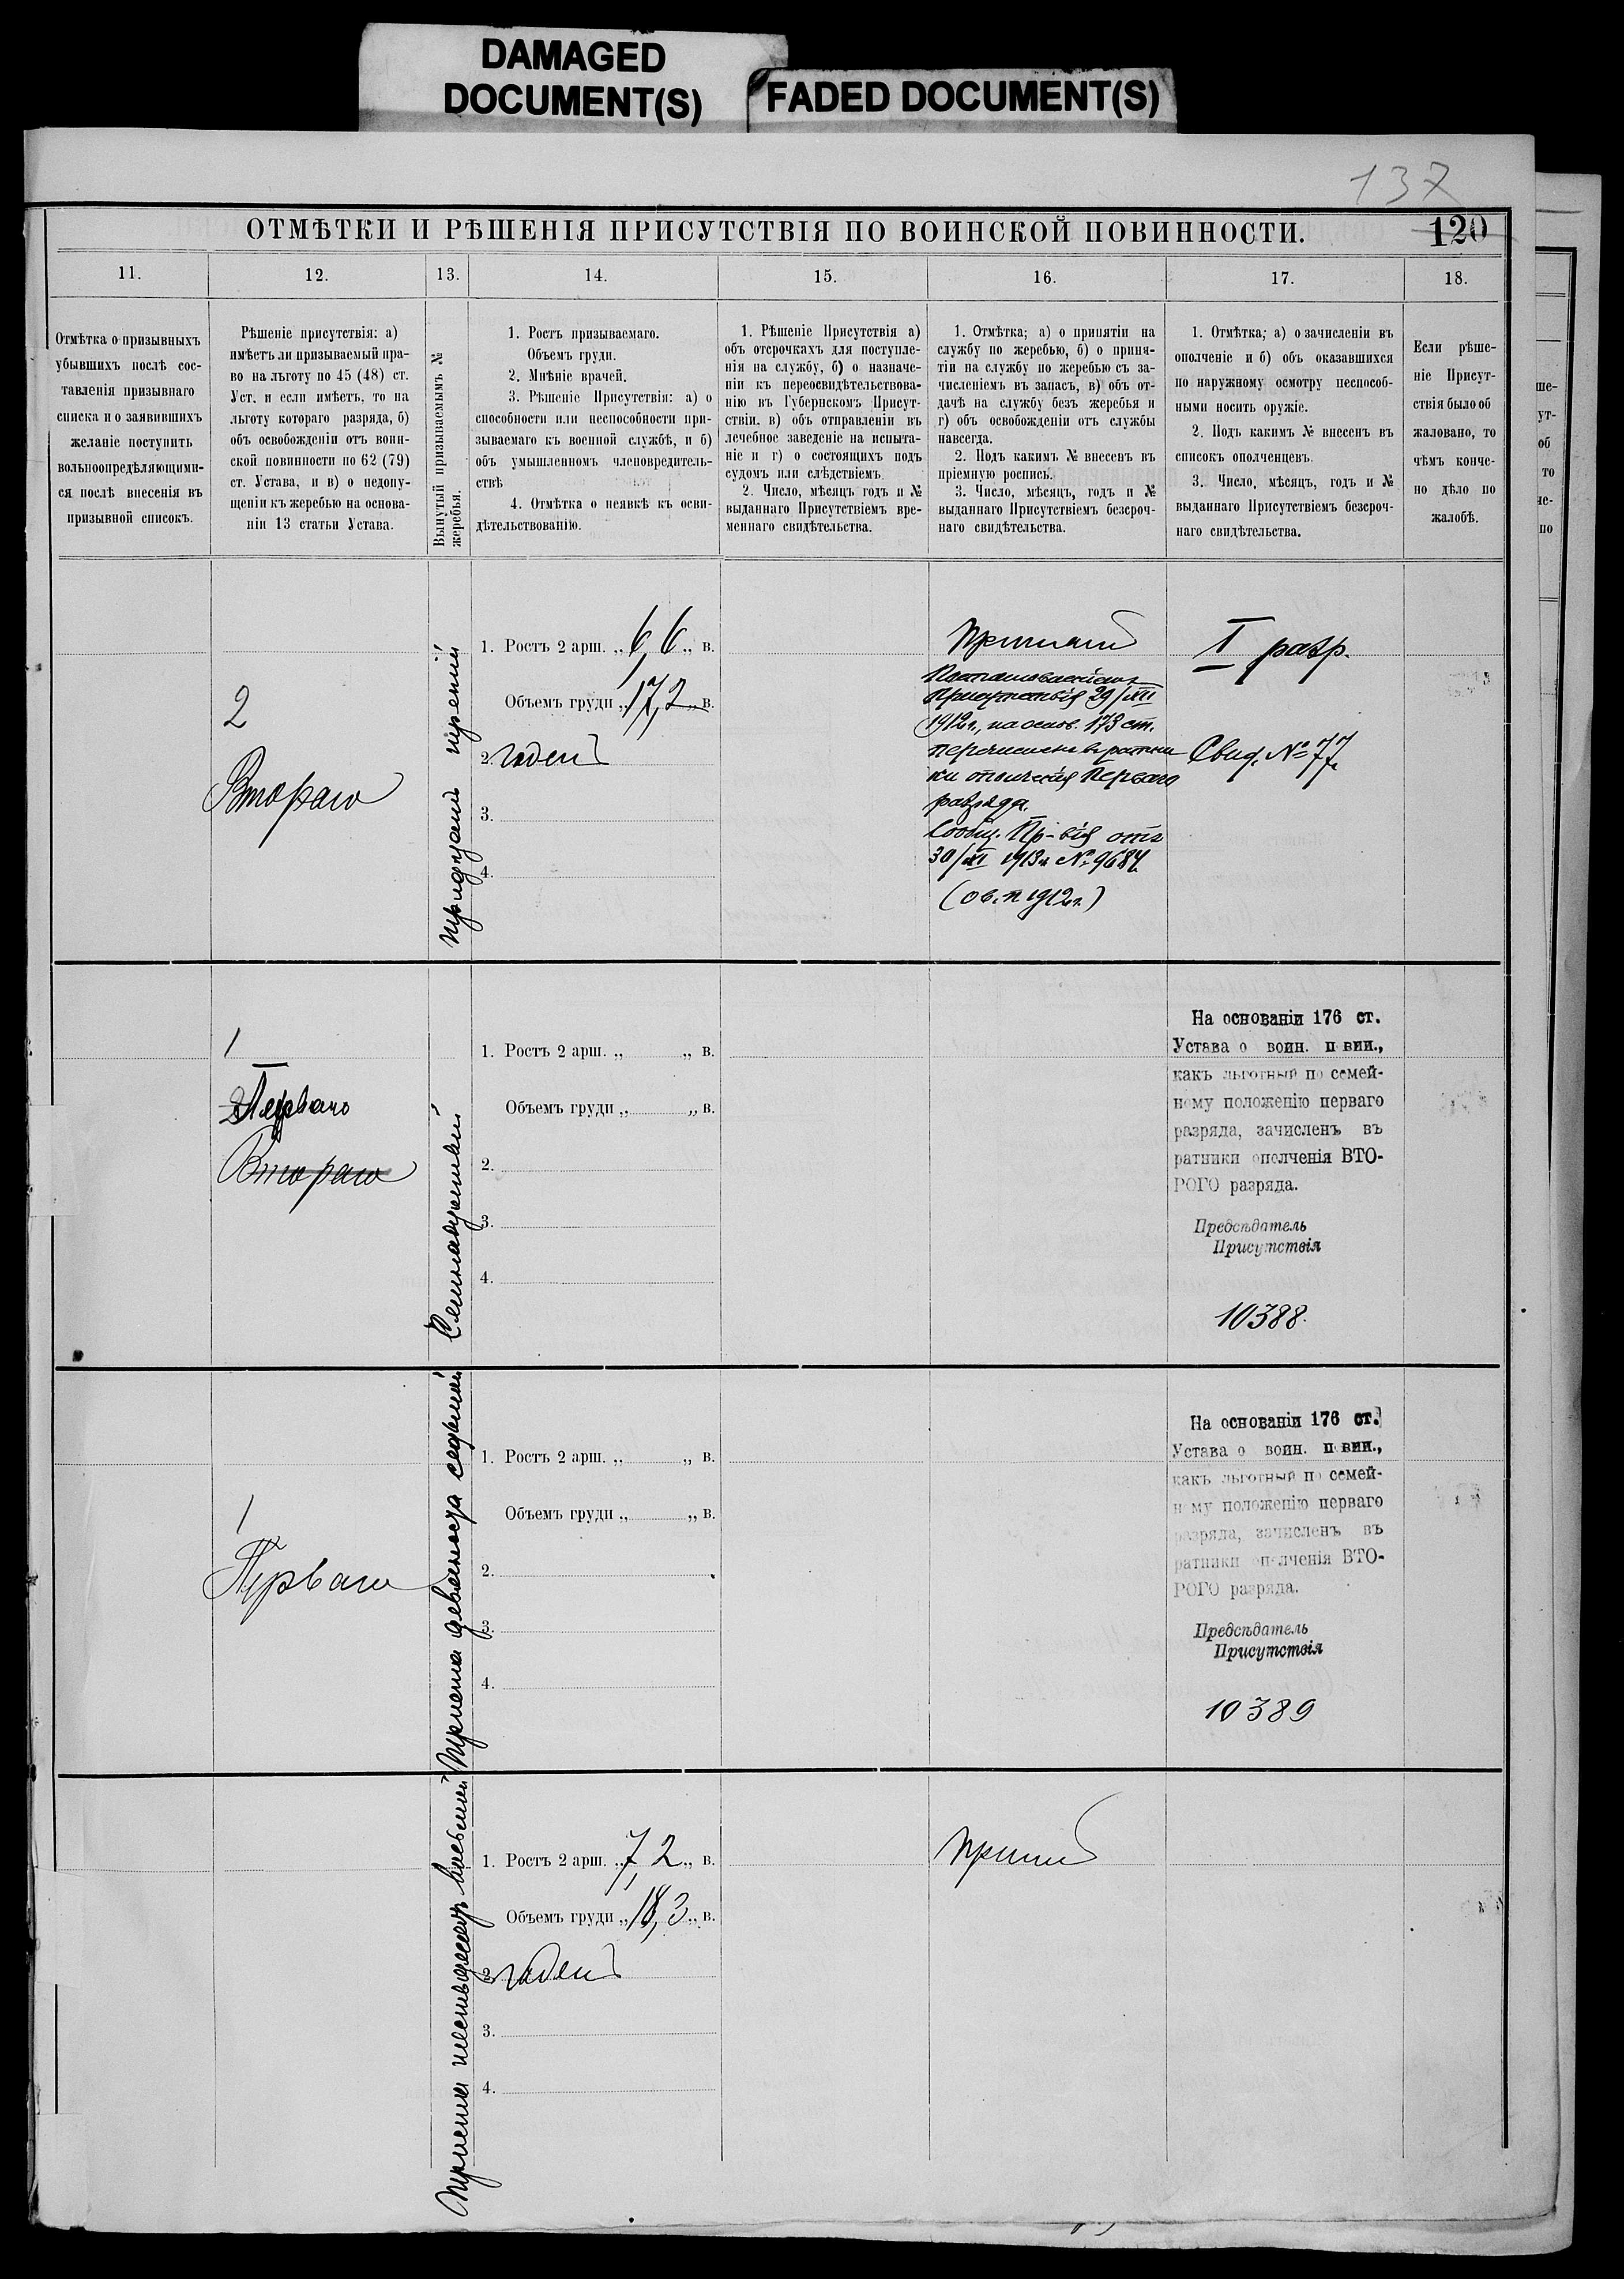 DAMAGED
DOCUMENT(S)
FADED DOCUMENT(S)
137
ОТМѢТКИ И РѢШЕНІЯ ПРИСУТСТВІЯ ПО ВОИНСКОЙ ПОВИННОСТИ.
120
11.
12.
13.
14.
15.
16.
17.
18.
Отмѣтка о призывныхъ
убывшихъ послѣ сос-
тавленія призывнаго
списка и о заявившихъ
желаніе поступить
вольноопредѣляющими-
ся послѣ внесенія въ
призывной списокъ.
Рѣшеніе присутствія: а)
имѣетъ ли призываемый пра-
во на льготу по 45 (48) ст.
Уст. и если имѣетъ, то на
льготу котораго разряда, б)
объ освобожденіи отъ воин-
ской повинности по 62 (79)
ст. Устава, и в) о недопу-
щеніи къ жеребью на основа-
ніи 13 статьи Устава.
Вынутый призываемымъ №
жеребья.
1. Ростъ призываемаго.
Объемъ груди.
2. Мнѣніе врачей.
3. Рѣшеніе Присутствія: а) о
способности или неспособности при-
зываемаго къ военной службѣ, и б)
объ умышленномъ членовредитель-
ствѣ
4. Отмѣтка о неявкѣ къ осви-
дѣтельствованію.
1. Рѣшеніе Присутствія а)
объ отсрочкахъ для поступле-
нія на службу, б) о назначе-
ніи къ переосвидѣтельствова-
нію въ Губернскомъ Присут-
ствіи, в) объ отправленіи въ
лечебное заведеніе на испыта-
ніе и г) о состоящихъ подъ
судомъ или слѣдствіемъ.
2. Число, мѣсяцъ годъ и №
выданнаго Присутствіемъ вре-
меннаго свидѣтельства.
1. Отмѣтка; а) о принятіи на
службу по жеребью, б) о приня-
тіи на службу по жеребью съ за-
численіемъ въ запасъ, в) объ от-
дачѣ на службу безъ жеребья и
г) объ освобожденіи отъ службы
навсегда.
2. Подъ какимъ № внесенъ въ
пріемную роспись.
3. Число, мѣсяцъ, годъ и №
выданнаго Присутствіемъ безсроч-
наго свидѣтельства.
1. Отмѣтка; а) о зачисленіи въ
ополченіе и б) объ оказавшихся
по наружному осмотру неспособ-
ными носить оружіе.
2. Подъ какимъ № внесенъ въ
списокъ ополченцевъ.
3. Число, мѣсяцъ, годъ и №
выданнаго Присутствіемъ безсроч-
наго свидѣтельства.
Если рѣше-
ніе Присут-
ствія было об
жаловано, то
чѣмъ конче-
но дѣло по
жалобѣ.
2
Втораго
тридцать третій
1. Ростъ 2 арш. „6,6„ в.
Объемъ груди „17,2„ в.
2. годенъ
3.
4.
Принятъ
Постановленіемъ
Присутствія 29/XII
1912г., на основ. 173 ст.
перечисленъ въ ратни
ки ополченія Перваго
разряда.
Сообщ. Пр-вія отъ
30/XI 1913г. № 9684.
(ов. п 1912г.)
I разр.
Свид. № 77.
1
Перваго
Втораго
1. Ростъ 2 арш. „ „ в.
Объемъ груди „ „ в.
2.
3.
4.
На основаніи 176 ст.
Устава о воин. повин.,
какъ льготный по семей-
ному положенію перваго
разряда, зачисленъ въ
ратники ополченія ВТО-
РОГО разряда.
Предсѣдатель
Присутствія
10388.
1
Перваго
Триста девяносто седьмой
1. Ростъ 2 арш. „ „ в.
Объемъ груди „ „ в.
2.
3.
4.
На основаніи 176 ст.
Устава о воин. повин.,
какъ льготный по семей-
ному положенію перваго
разряда, зачисленъ въ
ратники ополченія ВТО-
РОГО разряда.
Предсѣдатель
Присутствія
10389
Триста шестьдесятъ восьмой
1. Ростъ 2 арш. „7,2„ в.
Объемъ груди „18,3„ в.
2. годенъ
3.
4.
Принятъ